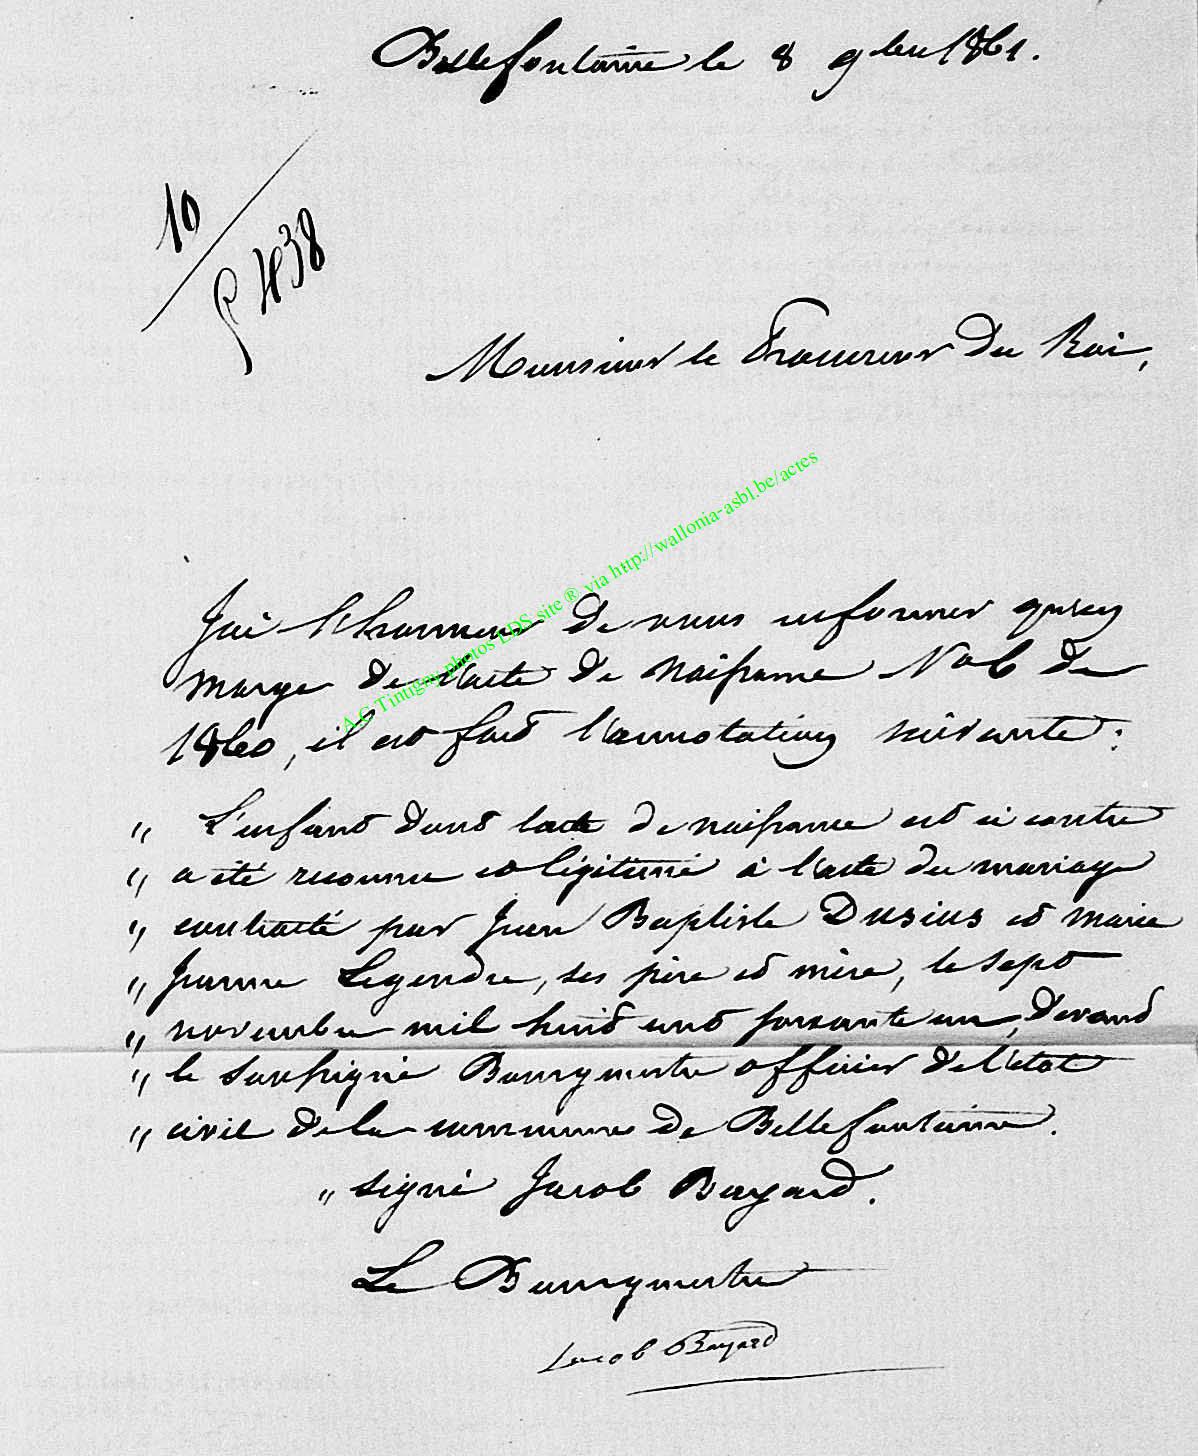 Bellefontaine le 8 9bre 1861.
10
P 4838
Monsieur le Procureur du Roi,
J'ai l'honneur de vous informer qu'en
marge de l'acte de naissance N° 6 de
1860, il est fait l'annotation suivante :
" L'enfant dont l'acte de naissance est ci contre
" a été reconnu et légitimé à l'acte du mariage
" contracté par Jean Baptiste Dusius et marie
" Jeanne Legendre, ses père et mère, le sept
" novembre mil huit cent soixante un, devant
" le soussigné Bourgmestre officier de l'état
" civil de la commune de Bellefontaine.
" signé Jacob Bayard.
Le Bourgmestre
Jacob Bayard
A.G Tintigny photos EDS site ® via http://wallonia-asbl.be/actes